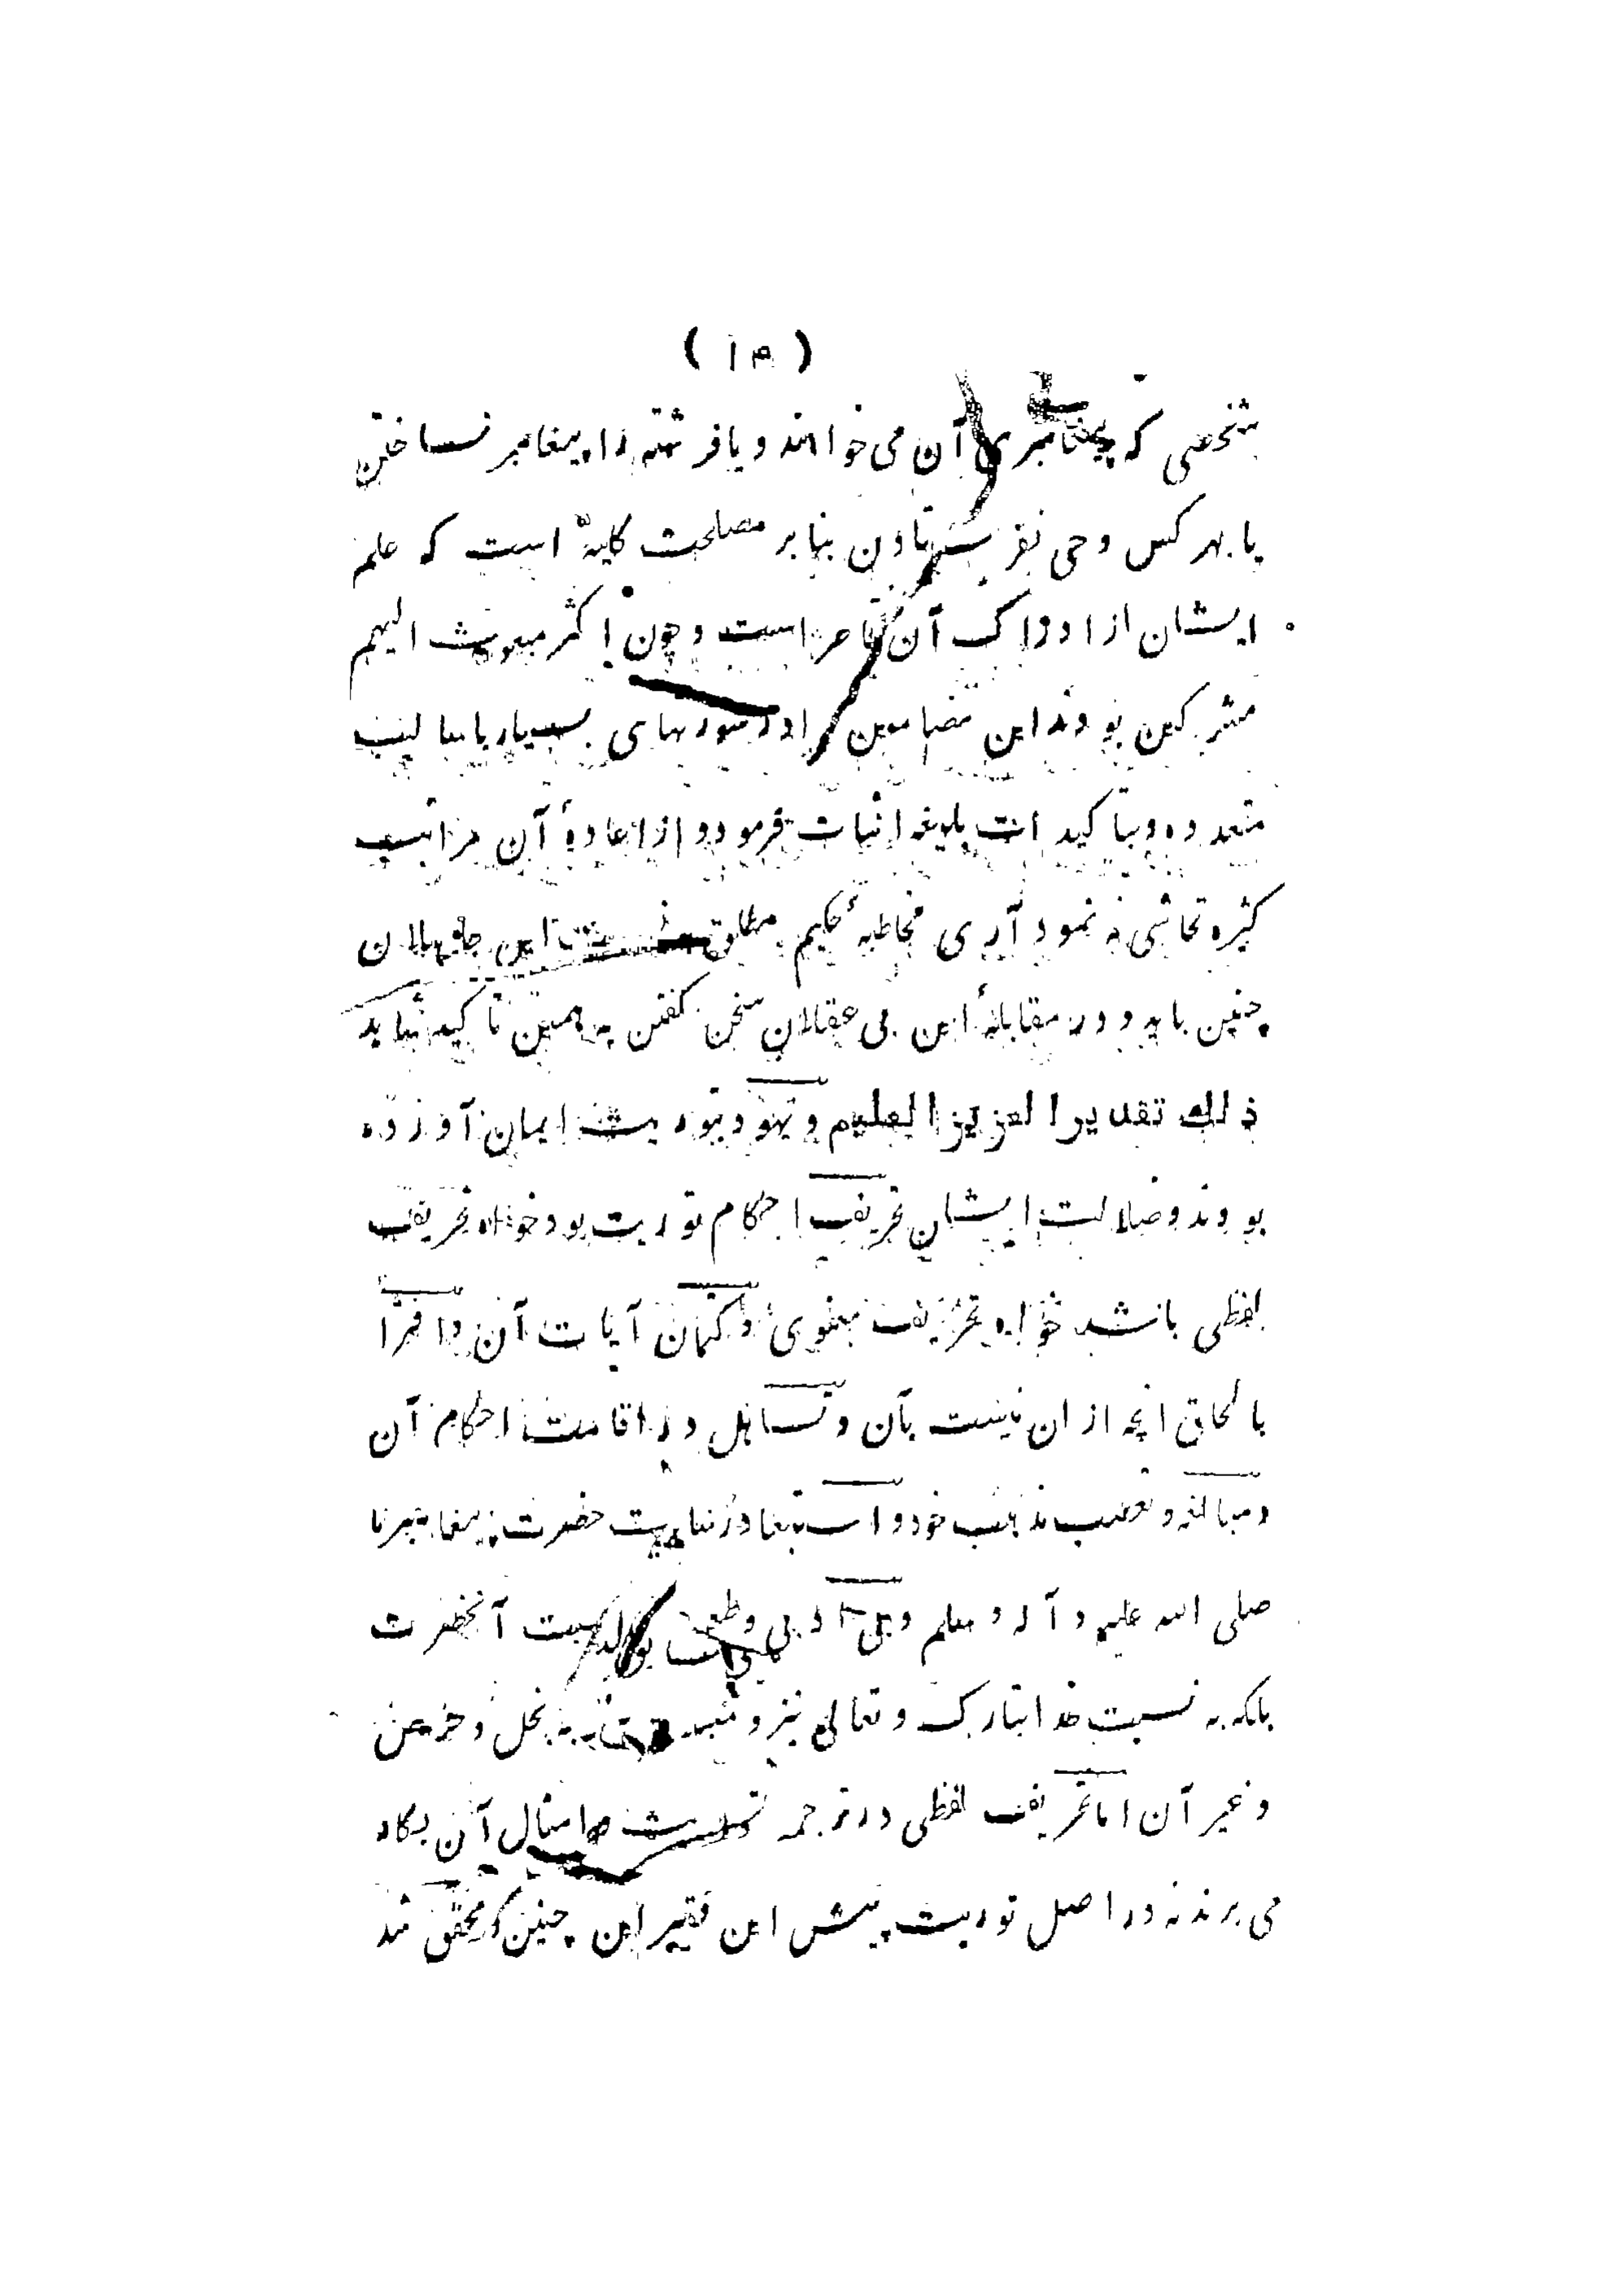 ( ۱۳ )
شخصی که پیغامبری آن می خواهند و یا فرشته را پیغامبر نساختن
یا بهر کس وحی نفرستادن بنابر مصلحت کلیه است که علم
ایشان از ادراک آن قاصر است و چون اکثر مبعوث الیهم
مشرکین بودند این مضامین را در سورتهای بسیار باسالیب
متعدده و بتاکیدات بلیغه اثبات فرمود و از اعادهٔ آن مراتب
کثیره تحاشی نه نمود آری مخاطبهٔ حکیم مطلق این جاهلان
چنین باید و در مقابلهٔ این بی عقلان سخن گفتن به همین تاکید شاید
ذلك تقدير العزيز العليم و یهود بتوریت ایمان آورده
بودند و ضلالت ایشان تحریف احکام توریت بود خواه تحریف
لفظی باشد خواه تحریف معنوی و کتمان آیات آن و افترا
بالحاق انچه ازان نیست بآن و تساهل در اقامت احکام آن
و مبالغه و تعصب مذهب خود و استبعاد رسالت حضرت پیغامبر ما
صلی الله علیه و آله و سلم و بی ادبی و طعن نسبت آنحضرت
بلکه به نسبت خدا تبارک و تعالی نیز و به بخل و حرص
و غیر آن اما تحریف لفظی در ترجمه توریت و امثال آن بکار
می برند نه در اصل توریت پیش این فقیر این چنین محقق شد